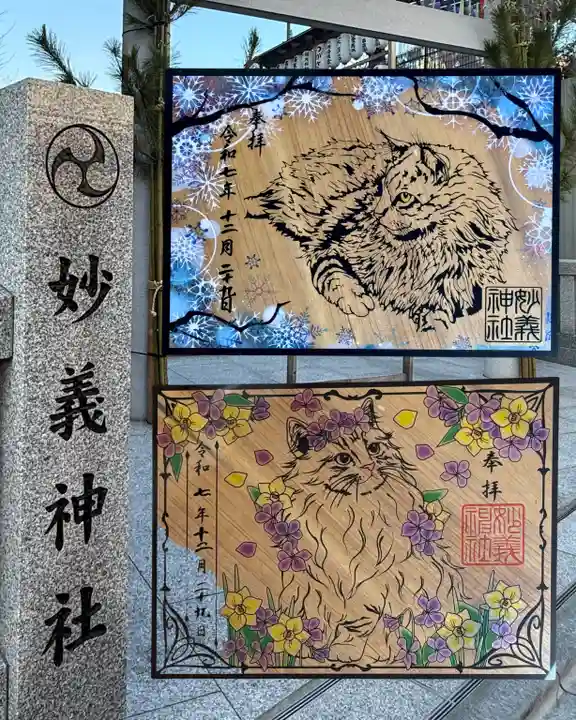 妙義神社
奉拝
令和七年十二月二十九日
妙義
神社
奉拝
令和七年十二月二十九日
妙義
神社